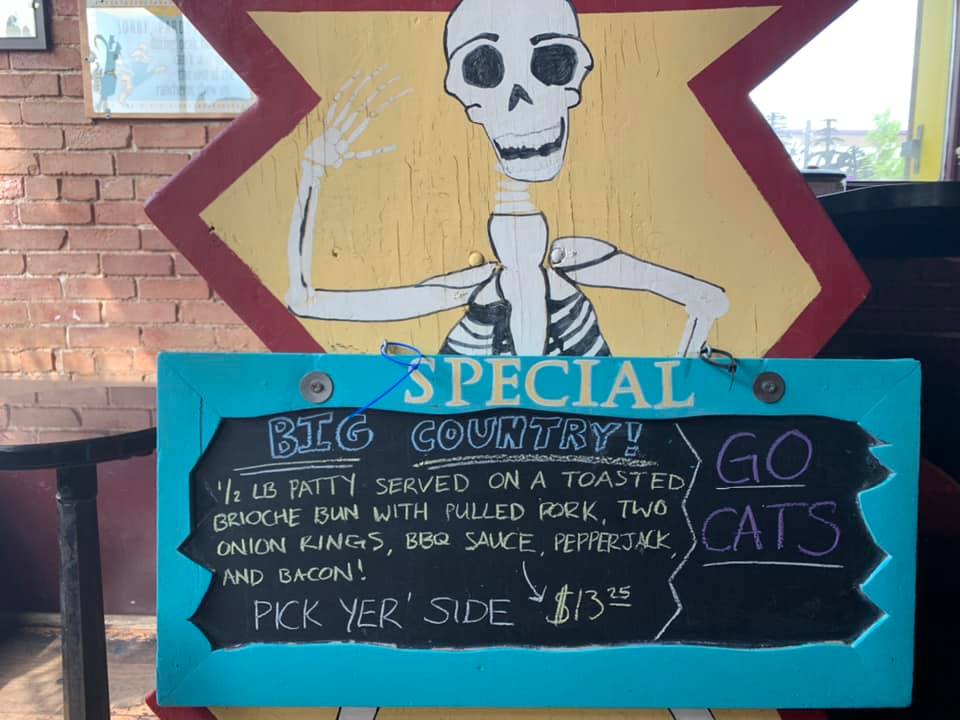 SPECIAL
BIG COUNTRY!
1/2 LB PATTY SERVED ON A TOASTED
BRIOCHE BUN WITH PULLED PORK, TWO
ONION RINGS, BBQ SAUCE, PEPPERJACK,
AND BACON!
PICK YER' SIDE $13.25
GO
CATS